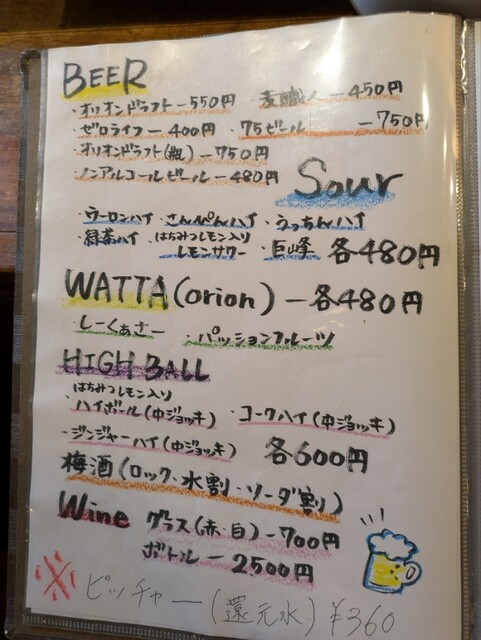 BEER
・オリオンドラフト－550円 ・麦職人－450円
・ゼロライフ－400円 ・75ビール －750円
・オリオンドラフト(瓶)－750円
・ノンアルコールビール－480円
Sour
・ウーロンハイ ・さんぴんハイ ・うっちんハイ
・緑茶ハイ ・はちみつレモン入り
レモンサワー ・巨峰 各480円
WATTA(orion)－各480円
・しーくぁさー ・パッションフルーツ
HIGH BALL
はちみつレモン入り
・ハイボール(中ジョッキ) ・コークハイ(中ジョッキ)
・ジンジャーハイ(中ジョッキ) 各600円
梅酒(ロック・水割・ソーダ割)
Wine グラス(赤・白)－700円
ボトル－2500円
※ピッチャー(還元水)¥360